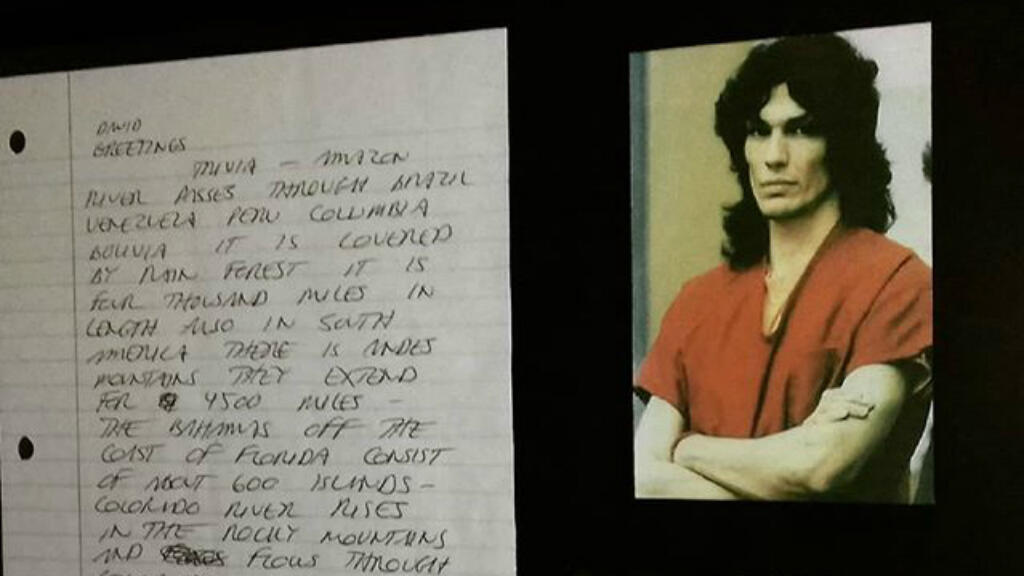 DAVID
GREETINGS
TRIVIA – AMAZON
RIVER PASSES THROUGH BRAZIL
VENEZUELA PERU COLUMBIA
BOLIVIA IT IS COVERED
BY RAIN FOREST IT IS
FOUR THOUSAND MILES IN
LENGTH ALSO IN SOUTH
AMERICA THERE IS ANDES
MOUNTAINS THEY EXTEND
FOR 4500 MILES –
THE BAHAMAS OFF THE
COAST OF FLORIDA CONSIST
OF ABOUT 600 ISLANDS –
COLORADO RIVER RISES
IN THE ROCKY MOUNTAINS
AND FLOWS THROUGH